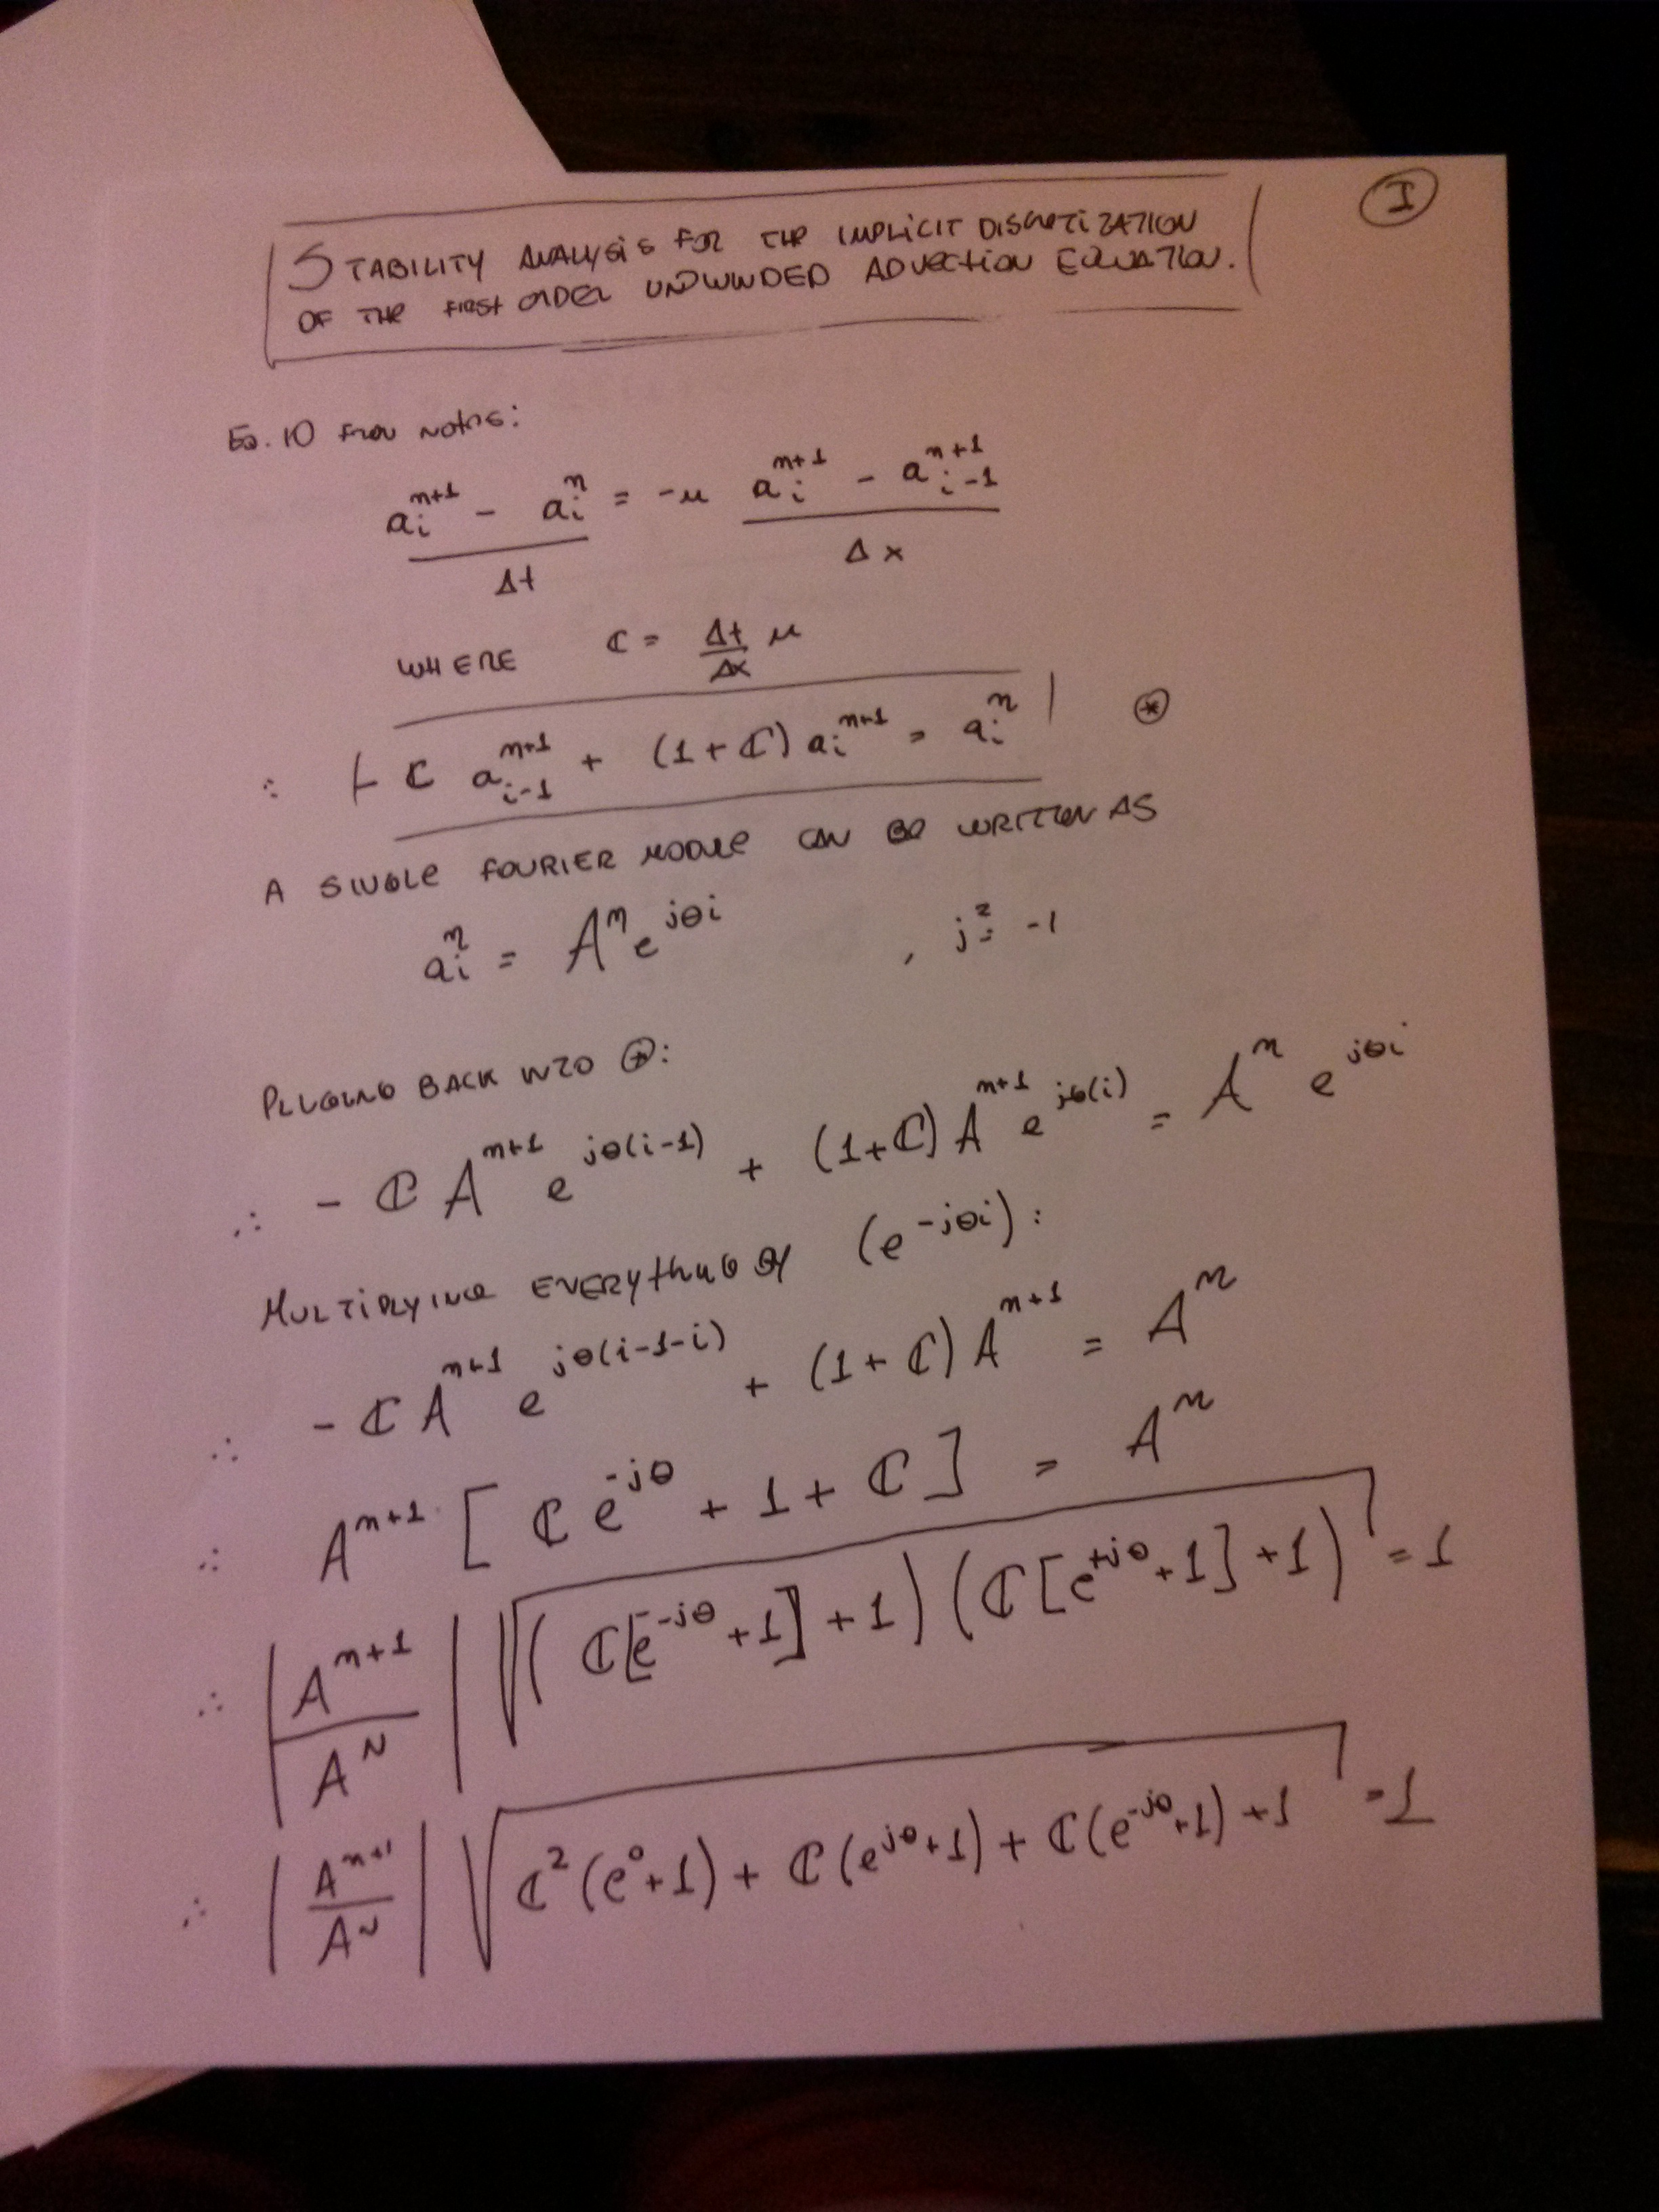 I
STABILITY ANALYSIS FOR THE IMPLICIT DISCRETIZATION
OF THE FIRST ORDER UPWINDED ADVECTION EQUATION.
EQ. 10 FROM NOTES:
(a_i^{n+1} - a_i^n) / Δt = -u (a_i^{n+1} - a_{i-1}^{n+1}) / Δx
WHERE C = (Δt/Δx) u
∴ -C a_{i-1}^{n+1} + (1+C) a_i^{n+1} = a_i^n ⊛
A SINGLE FOURIER MODE CAN BE WRITTEN AS
a_i^n = A^n e^{jθi} , j^2 = -1
PLUGING BACK INTO ⊛:
∴ - C A^{n+1} e^{jθ(i-1)} + (1+C) A^{n+1} e^{jθ(i)} = A^n e^{jθi}
MULTIPLYING EVERYTHING BY (e^{-jθi}):
∴ - C A^{n+1} e^{jθ(i-1-i)} + (1+C) A^{n+1} = A^n
∴ A^{n+1} [C e^{-jθ} + 1 + C] = A^n
∴ |A^{n+1}/A^N| √((C[e^{-jθ}+1]+1)(C[e^{+jθ}+1]+1)) = 1
∴ |A^{n+1}/A^N| √(C^2(e^0+1) + C(e^{jθ}+1) + C(e^{-jθ}+1) + 1) = 1